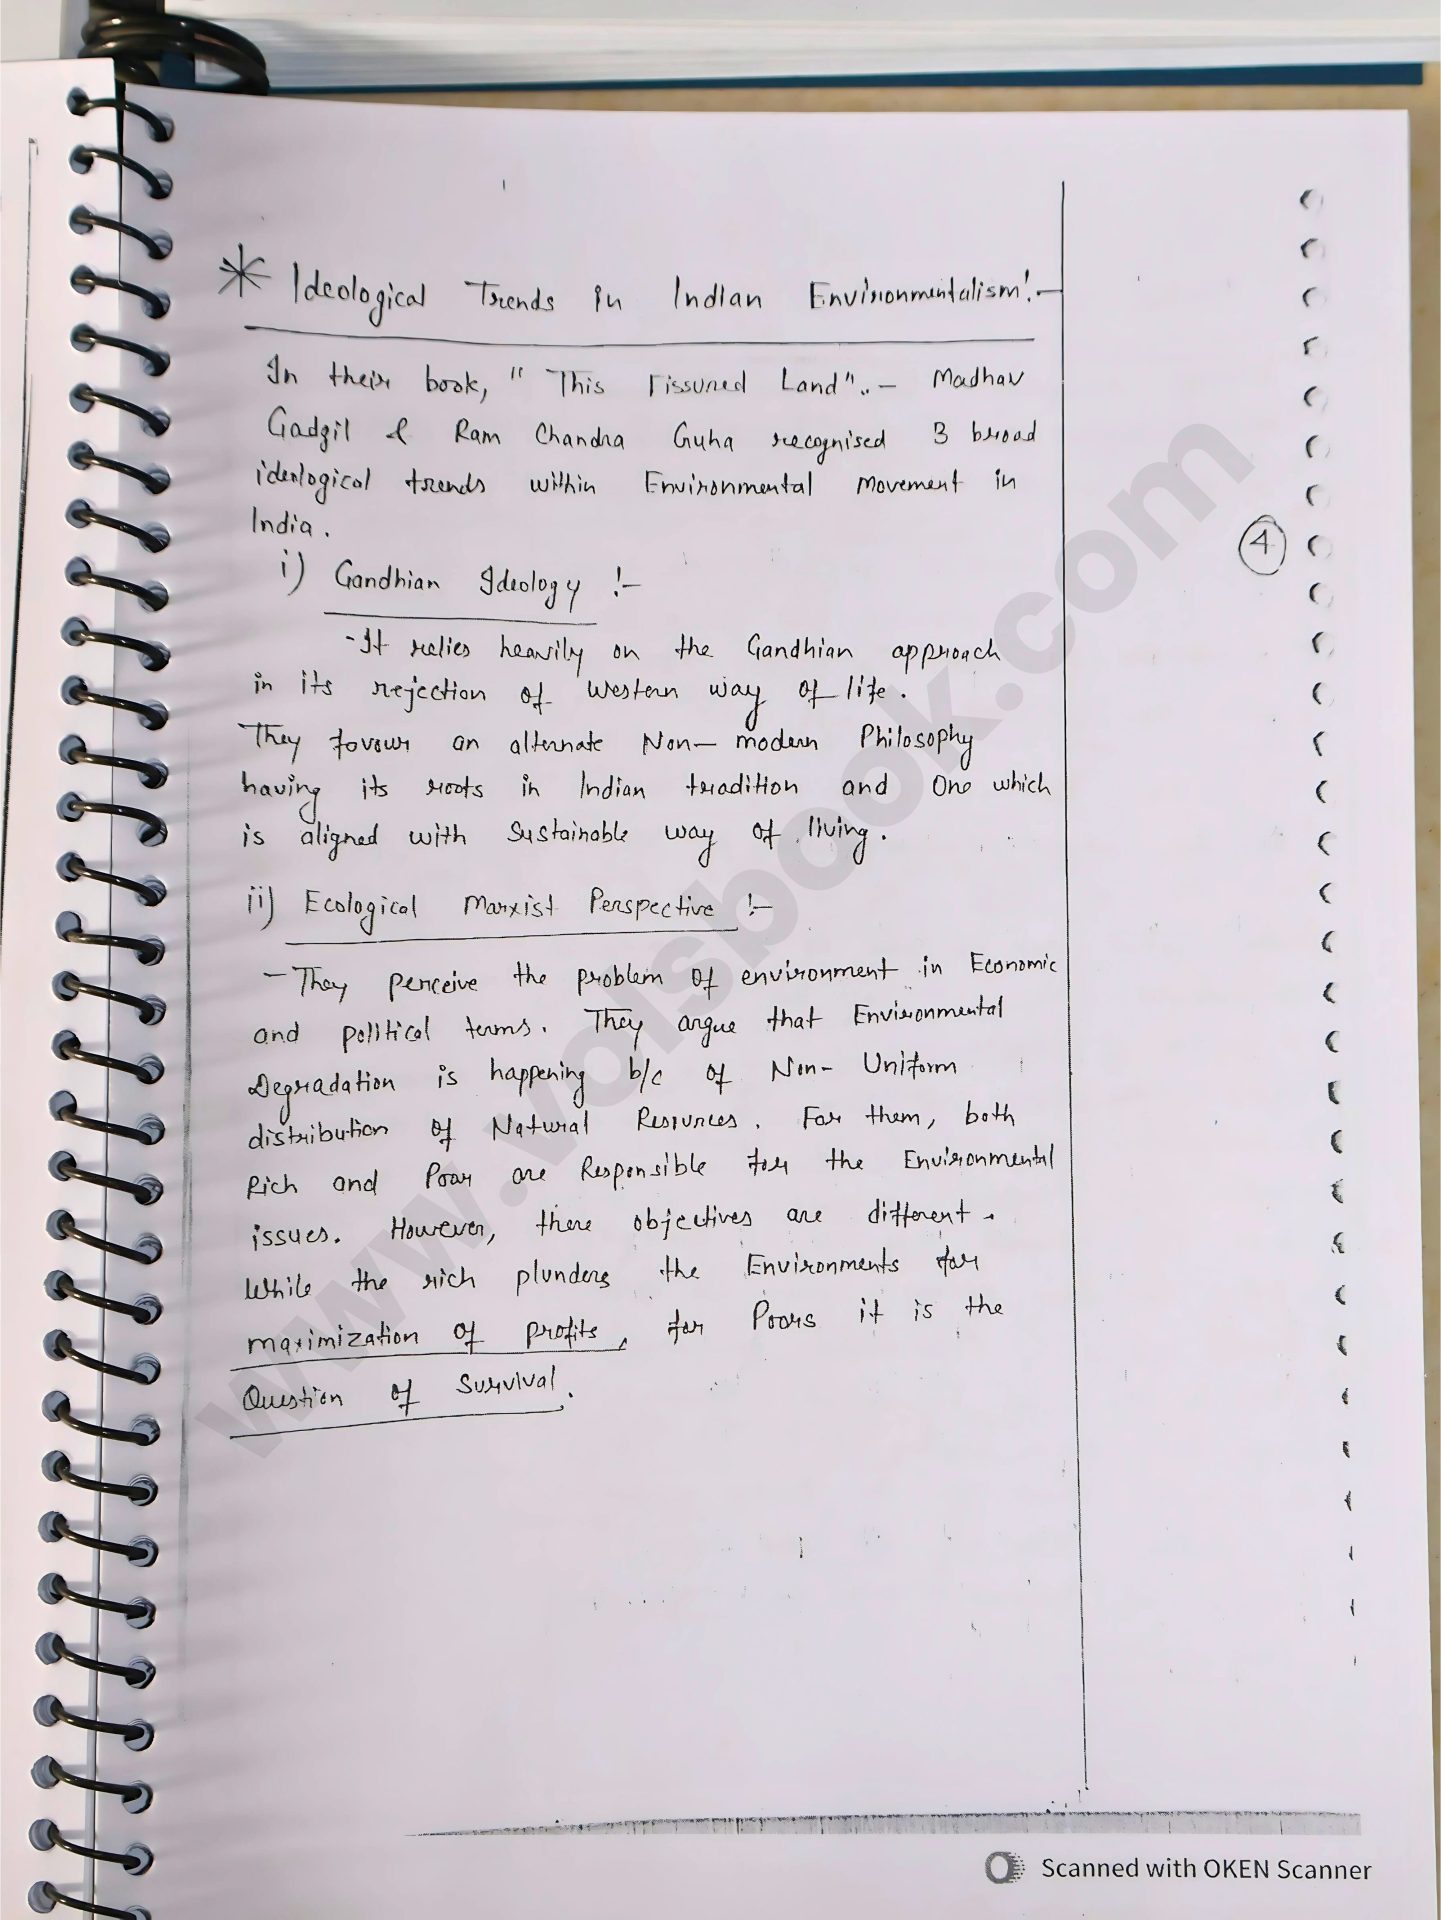 * Ideological Trends in Indian Environmentalism!-
In their book, "This Fissured Land".- Madhav
Gadgil & Ram Chandra Guha recognised 3 broad
ideological trends within Environmental Movement in
India.
4
i) Gandhian Ideology !-
-It relies heavily on the Gandhian approach
in its rejection of western way of life.
They favour an alternate Non-modern Philosophy
having its roots in Indian tradition and One which
is aligned with Sustainable way of living.
ii) Ecological Marxist Perspective !-
- They perceive the problem of environment in Economic
and political terms. They argue that Environmental
Degradation is happening b/c of Non-Uniform
distribution of Natural Resources. For them, both
Rich and Poor are Responsible for the Environmental
issues. However, there objectives are different.
While the rich plunders the Environments for
maximization of profits, for Poors it is the
Question of Survival.
www.volsbook.com
Scanned with OKEN Scanner